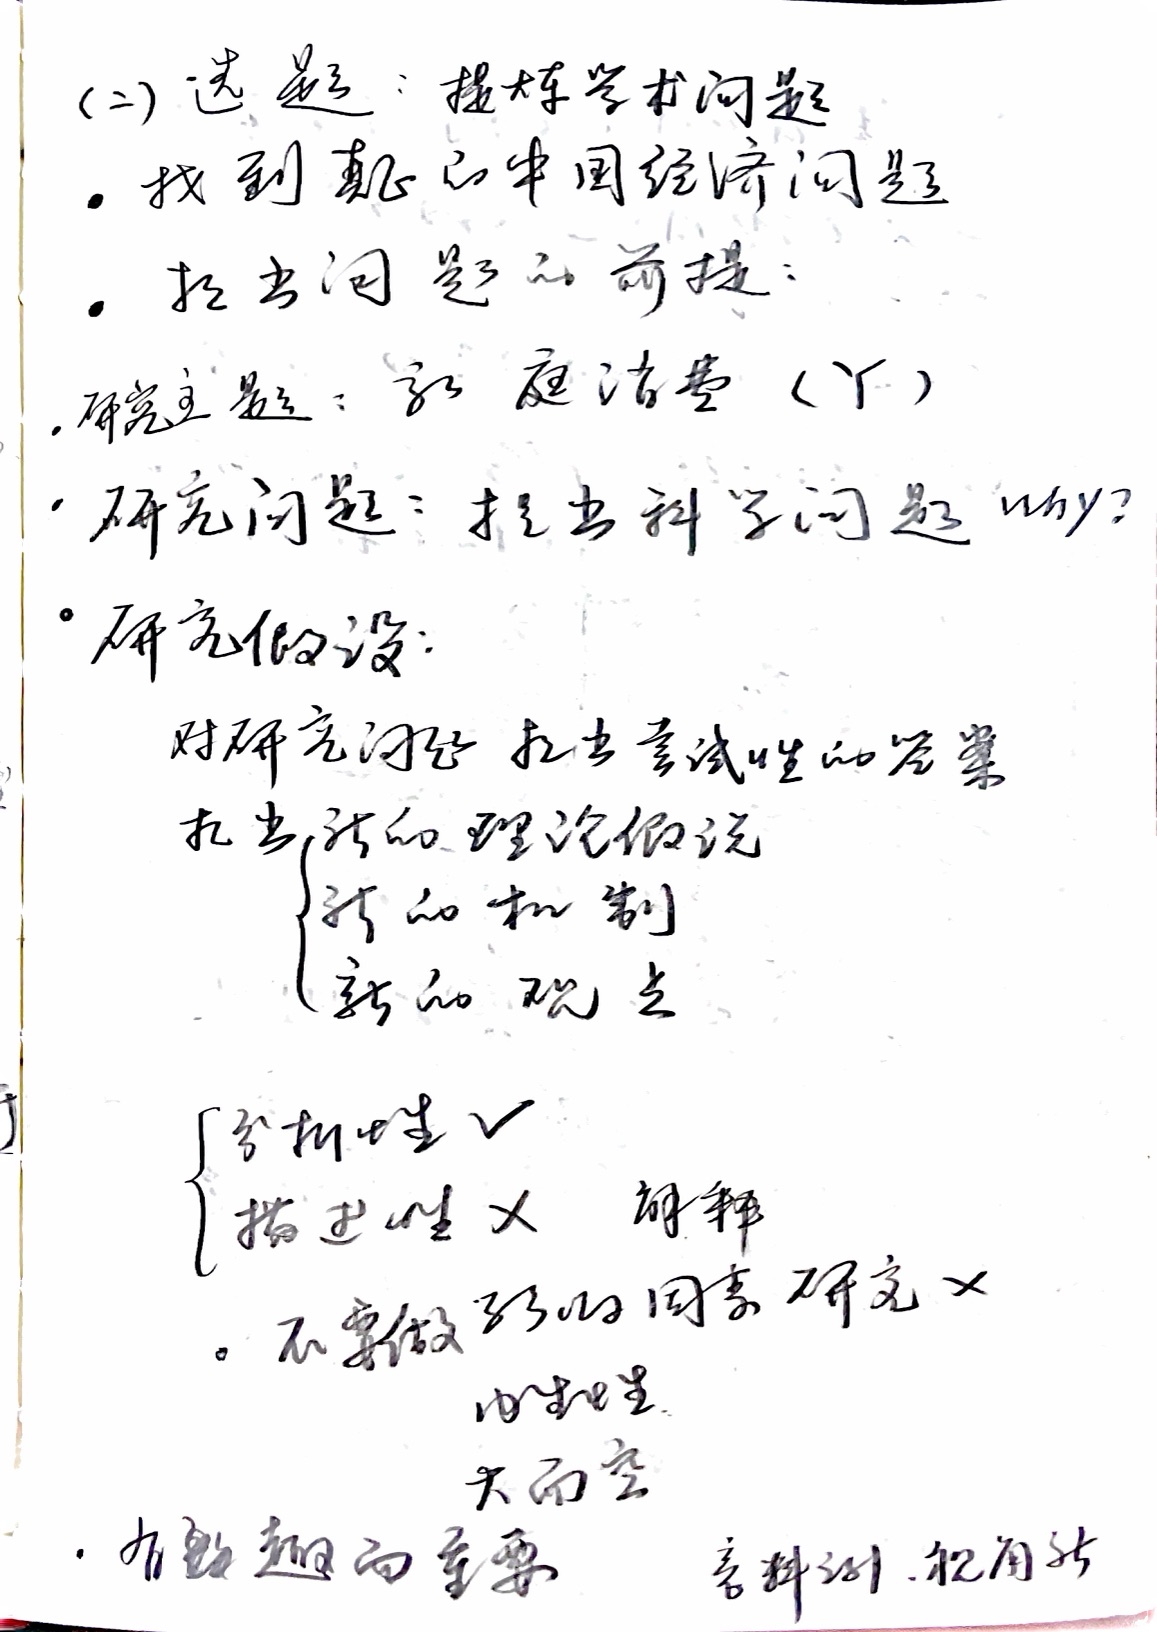 (二) 选题：提炼学术问题
· 找到真正的中国经济问题
· 提出问题的前提：
· 研究主题：家庭消费（Y）
· 研究问题：提出科学问题 why?
。研究假设：
对研究问题提出尝试性的答案
提出 新的理论假说
新的机制
新的观点
分析性 ✓
描述性 × 解释
。不要做影响因素研究 ×
内生性
大而空
· 有趣而重要 视角新